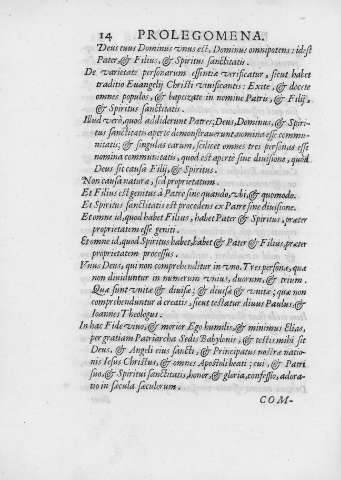 14 PROLEGOMENA.
Deus tuus Dominus vnus est, Dominus omnipotens: idest
Pater, & Filius, & Spiritus sanctitatis.
De varietate personarum essentiæ verificatur, sicut habet
traditio Euangelij Christi viuificantis: Exite, & docete
omnes populos, & baptizate in nomine Patris, & Filij,
& Spiritus sanctitatis.
Illud verò, quod addiderunt Patres; Deus, Dominus, & Spiri-
tus sanctitatis aperte demonstrauerunt, nomina esse commu-
nitatis; & singula earum, scilicet omnes tres personas esse
nomina communitatis, quod est aperte sine diuisione, quòd
Deus sit causa Filij, & Spiritus.
Non causa natura, sed proprietatum.
Et Filius est genitus à Patre sine quando, vbi, & quomodo.
Et Spiritus sanctitatis est procedens ex Patre sine diuisione.
Et omne id, quod habet Filius, habet Pater & Spiritus, præter
proprietatem esse geniti.
Et omne id, quod Spiritus habet, habet & Pater & Filius, præter
proprietatem processus.
Vnus Deus, qui non comprehenditur in vno. Tres personæ, quæ
non diuiduntur in numerum vnius, duorum, & trium.
Quæ sunt vnitæ & diuisæ; & diuisæ & vnitæ; quæ non
comprehenduntur à creatis, sicut testatur diuus Paulus, &
Ioannes Theologus.
In hac Fide viuo, & morior Ego humilis, & minimus Elias,
per gratiam Patriarcha Sedis Babylonis, & testis mihi sit
Deus, & Angeli eius sancti, & Principatus nostræ natio-
nis Iesus Christus, & omnes Apostoli beati; cui, & Patri
suo, & Spiritui sanctitatis, honor, & gloria, confessio, adora-
tio in sæcula sæculorum.
COM-